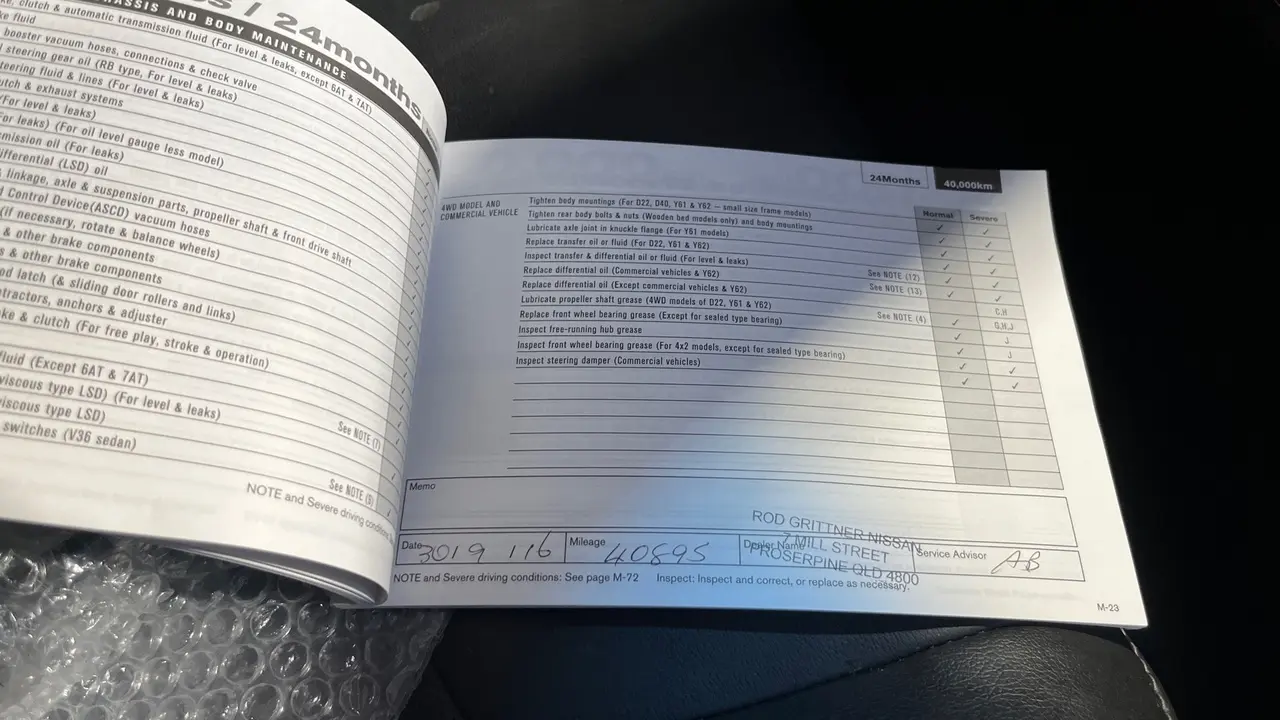 / 24months
CHASSIS AND BODY MAINTENANCE
clutch & automatic transmission fluid (For level & leaks, except 6AT & 7AT)
fluid
booster vacuum hoses, connections & check valve
steering gear oil (RB type, For level & leaks)
steering fluid & lines (For level & leaks)
& exhaust systems
(For level & leaks)
leaks) (For oil level gauge less model)
oil (For leaks)
differential (LSD) oil
linkage, axle & suspension parts, propeller shaft & front drive shaft
Control Device(ASCD) vacuum hoses
(if necessary, rotate & balance wheels)
& other brake components
& other brake components
latch (& sliding door rollers and links)
anchors & adjuster
& clutch (For free play, stroke & operation)
fluid (Except 6AT & 7AT)
viscous type LSD) (For level & leaks)
viscous type LSD) See NOTE (7)
switches (V36 sedan)
See NOTE (9)
NOTE and Severe driving
24Months 40,000km
Normal Severe
4WD MODEL AND
COMMERCIAL VEHICLE
Tighten body mountings (For D22, D40, Y61 & Y62 — small size frame models) ✓ ✓
Tighten rear body bolts & nuts (Wooden bed models only) and body mountings ✓ ✓
Lubricate axle joint in knuckle flange (For Y61 models) ✓ ✓
Replace transfer oil or fluid (For D22, Y61 & Y62) ✓ ✓
Inspect transfer & differential oil or fluid (For level & leaks) ✓ ✓
Replace differential oil (Commercial vehicles & Y62) See NOTE (12) ✓ ✓
Replace differential oil (Except commercial vehicles & Y62) See NOTE (13) C,H
Lubricate propeller shaft grease (4WD models of D22, Y61 & Y62) ✓ G,H,J
Replace front wheel bearing grease (Except for sealed type bearing) See NOTE (4) ✓ J
Inspect free-running hub grease ✓ J
Inspect front wheel bearing grease (For 4x2 models, except for sealed type bearing) ✓ ✓
Inspect steering damper (Commercial vehicles) ✓ ✓
Memo
Date 30 19 116 Mileage 40895 Dealer Name Service Advisor AB
ROD GRITTNER NISSAN
7 MILL STREET
PROSERPINE QLD 4800
NOTE and Severe driving conditions: See page M-72 Inspect: Inspect and correct, or replace as necessary.
M-23